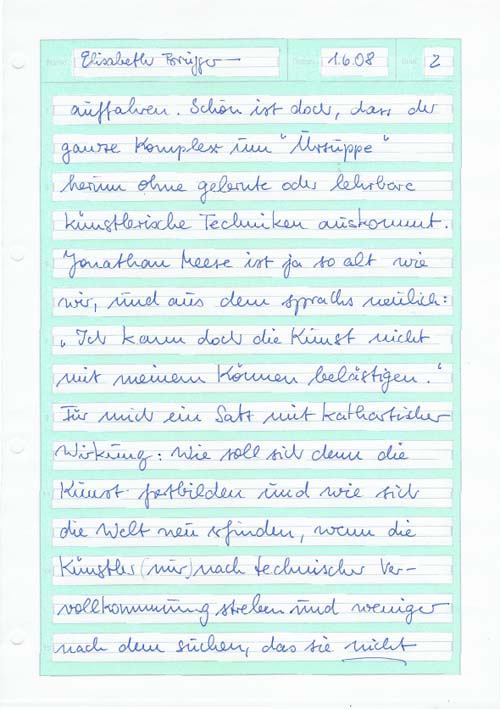 Elisabeth Brügger 1.6.08 2
auffahren. Schön ist doch, dass der
ganze Komplex um "Ursuppe"
herum ohne gelernte oder lehrbare
künstlerische Techniken auskommt.
Jonathan Meese ist ja so alt wie
wir, und aus dem sprachs neulich:
„Ich kann doch die Kunst nicht
mit meinem Können belästigen."
Für mich ein Satz mit kathartischer
Wirkung: Wie soll sich denn die
Kunst fortbilden und wie sich
die Welt neu erfinden, wenn die
Künstler (nur) nach technischer Ver-
vollkommnung streben und weniger
nach dem suchen, das sie nicht